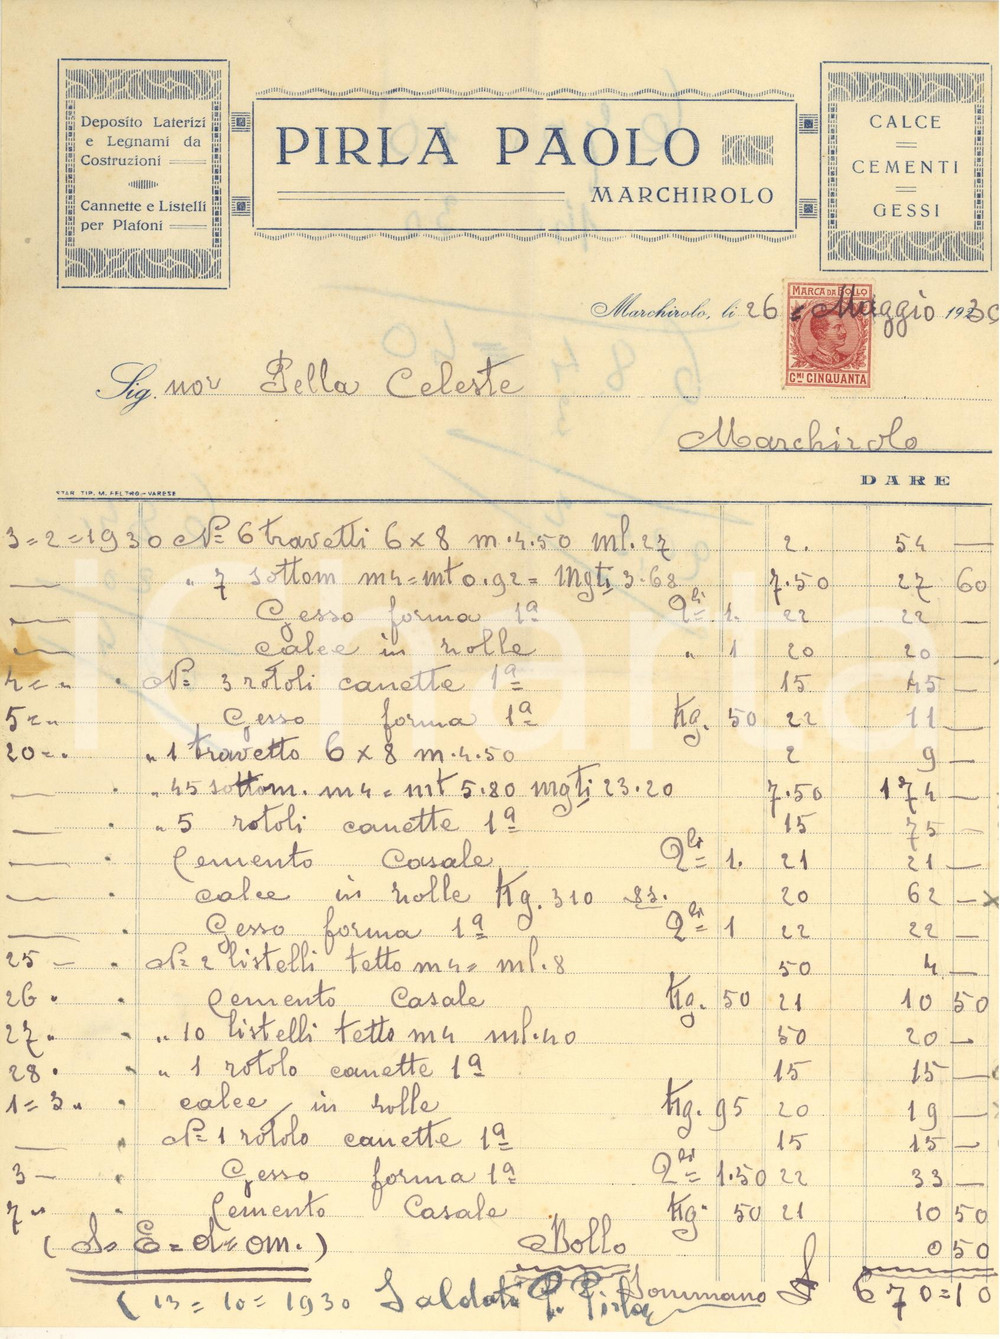 Deposito Laterizi
e Legnami da
Costruzioni
Cannette e Listelli
per Plafoni
PIRLA PAOLO
MARCHIROLO
CALCE
CEMENTI
GESSI
Marchirolo, li 26 = Maggio 1930
MARCA DA BOLLO
CMI CINQUANTA
Sig.nor Pella Celeste
Marchirolo
DARE
STAB. TIP. M. FELTMO - VARESE
3=2=1930 N= 6 travetti 6x8 m.4.50 ml.27 2. 54 —
— " 7 sottom m4=mt 0.92= Mgti 3.68 7.50 27 60
— Gesso forma 1a Qli= 1. 22 22 —
— calce in zolle " 1 20 20 —
4=" N= 3 rotoli canette 1a 15 45 —
5=" Gesso forma 1a Kg. 50 22 11 —
20=" " 1 travetto 6x8 m.4.50 2 9 —
— " 45 sottom. m4= mt 5.80 mgti 23.20 7.50 174 —
— " 5 rotoli canette 1a 15 75 —
— Cemento Casale Qli= 1. 21 21 —
— calce in zolle Kg. 310 20 62 —
— Gesso forma 1a Qli= 1 22 22 —
25 — N= 2 listelli tetto m4= ml.8 50 4 —
26 " Cemento Casale Kg. 50 21 10 50
27 " " 10 listelli tetto m4 ml.40 50 20 —
28 " " 1 rotolo canette 1a 15 15 —
1=3 " calce in zolle Kg. 95 20 19 —
— N= 1 rotolo canette 1a 15 15 —
3 — Gesso forma 1a Qli= 1.50 22 33 —
7 " Cemento Casale Kg. 50 21 10 50
( S= E= d= om. ) Bollo 0 50
Sommano £ 670=10
( 13=10=1930 Saldato P. Pirla
iCharta